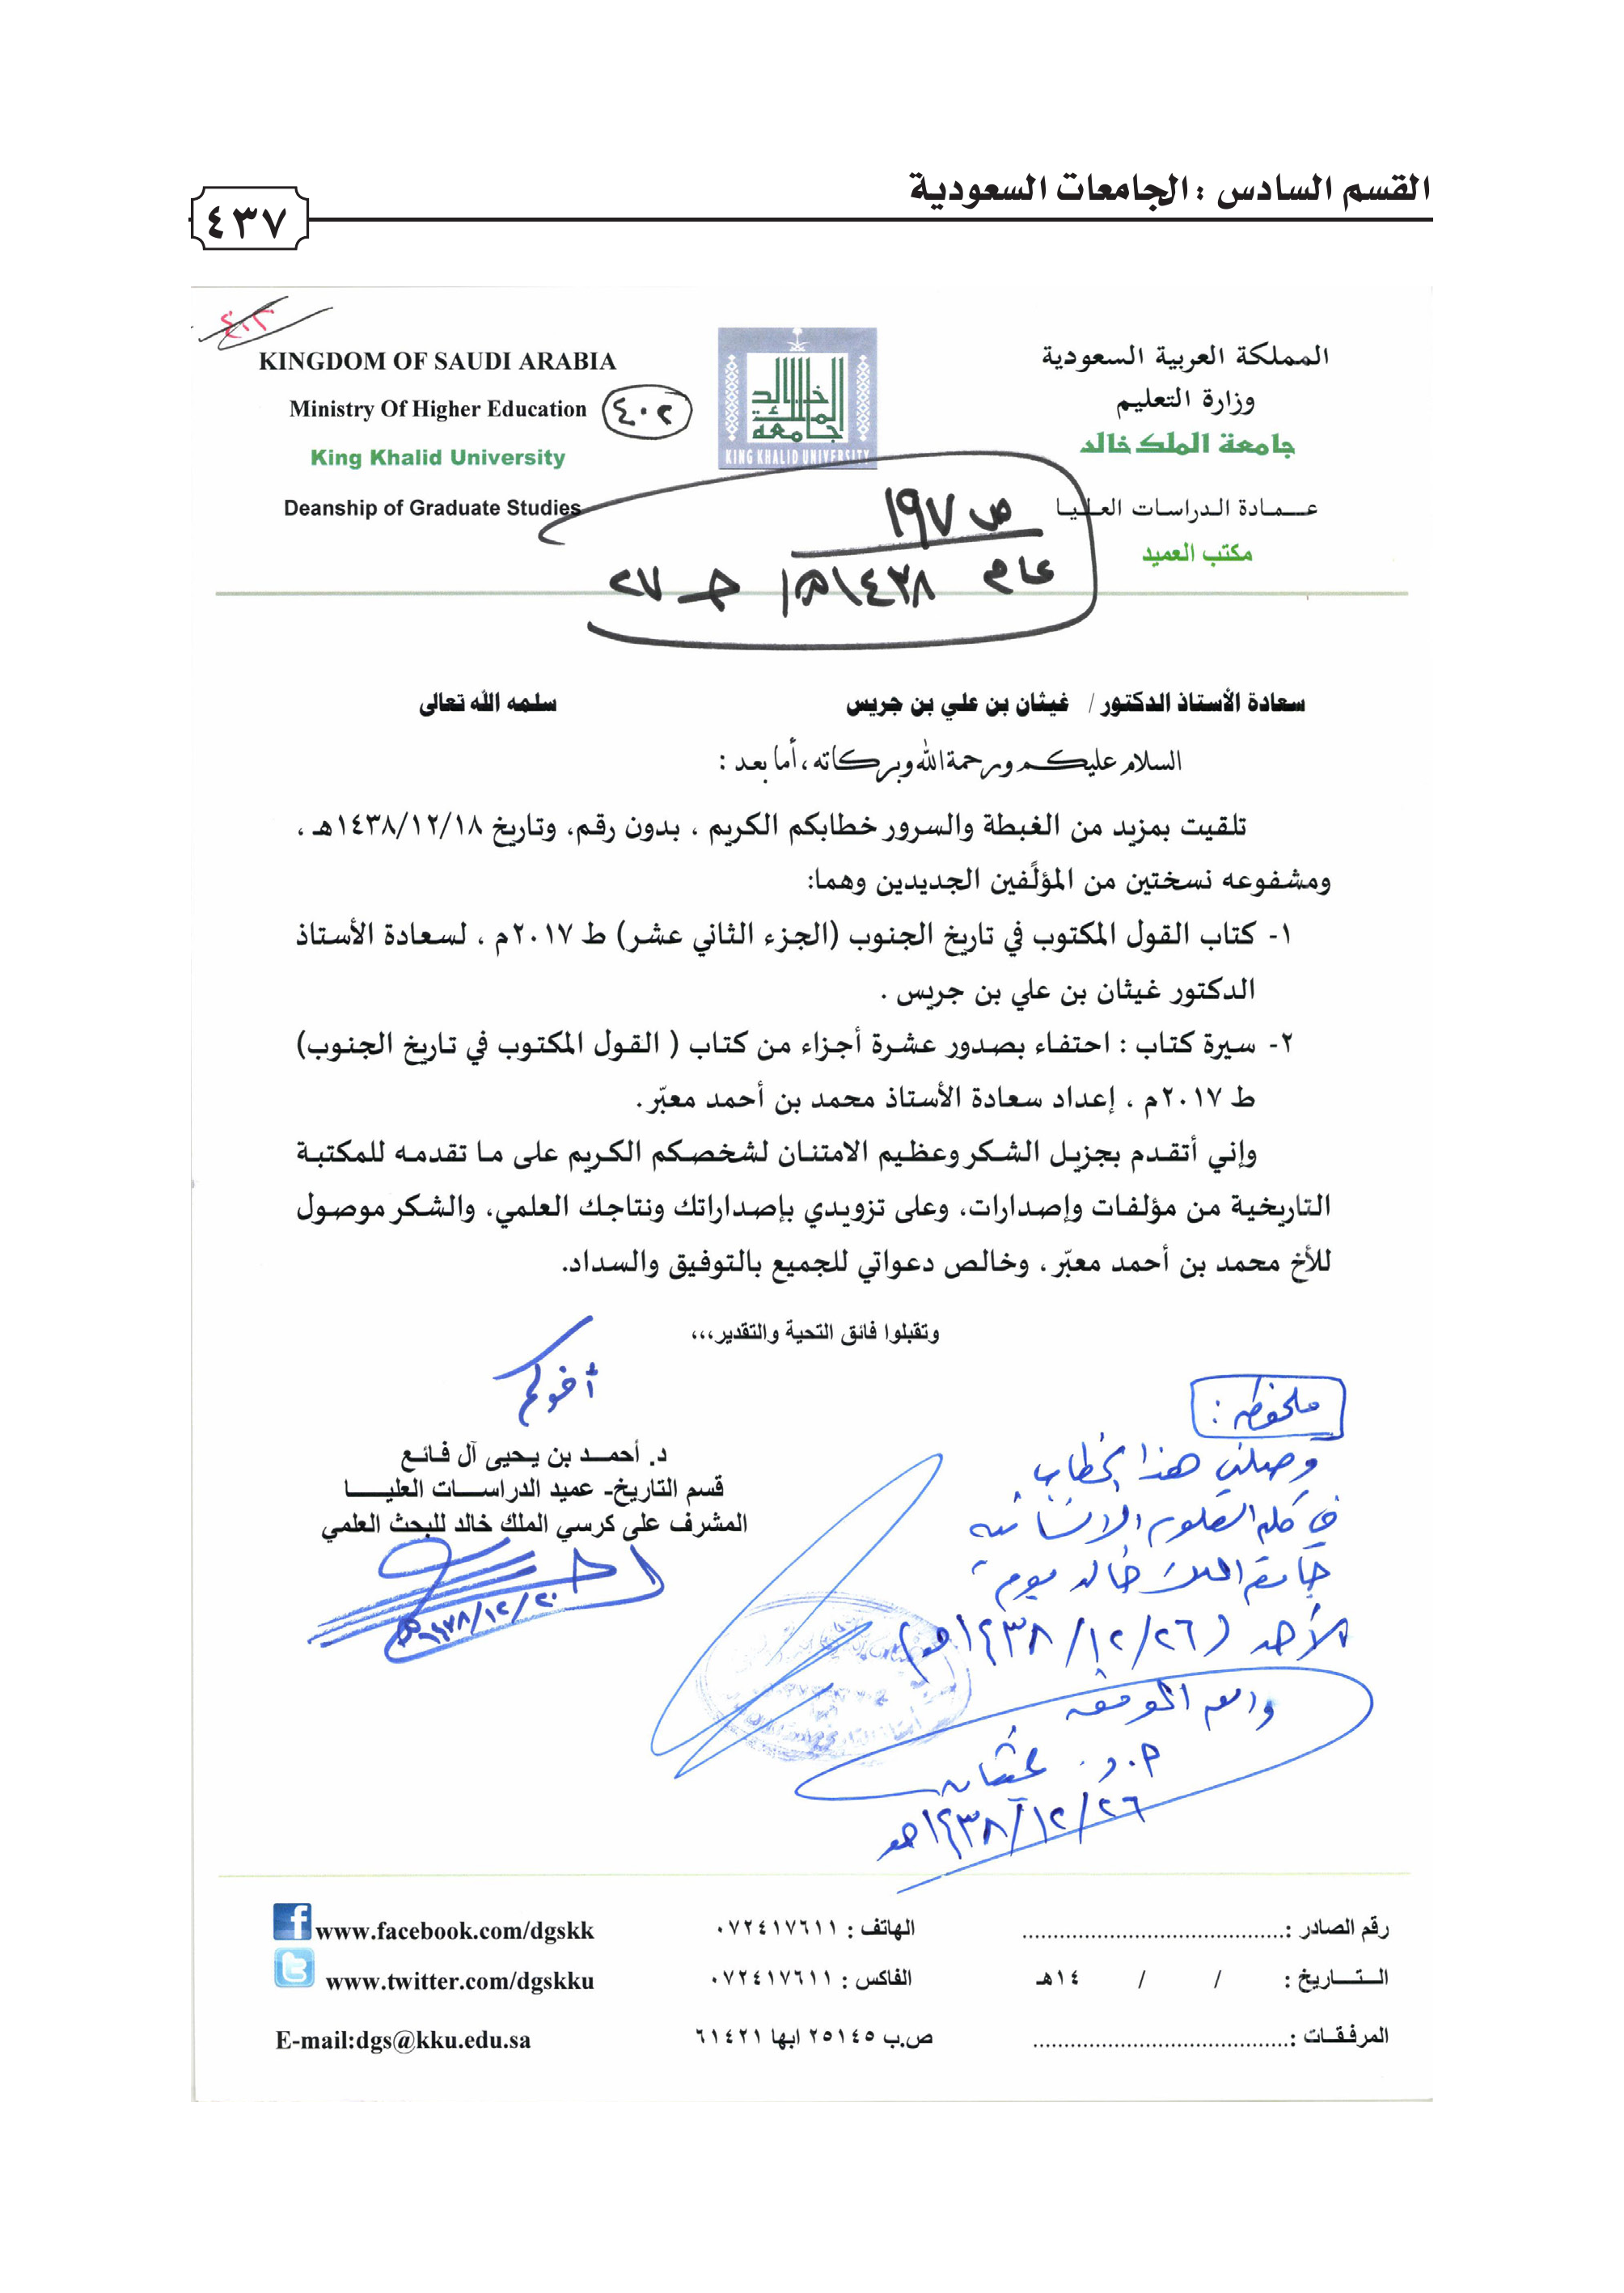 القسم السادس : الجامعات السعودية
٤٣٧
٤٠٢
KINGDOM OF SAUDI ARABIA
Ministry Of Higher Education
٤٠٢
King Khalid University
Deanship of Graduate Studies
جامعة الملك خالد
KING KHALID UNIVERSITY
المملكة العربية السعودية
وزارة التعليم
جامعة الملك خالد
عـــمــادة الـدراسـات العـلـيـا
مكتب العميد
ص ١٩٧
عام ١٤٣٨هـ / جـ ٢٧
سعادة الأستاذ الدكتور / غيثان بن علي بن جريس سلمه الله تعالى
السلام عليكم ورحمة الله وبركاته ، أما بعد :
تلقيت بمزيد من الغبطة والسرور خطابكم الكريم ، بدون رقم، وتاريخ ١٤٣٨/١٢/١٨هـ ،
ومشفوعه نسختين من المؤلَّفين الجديدين وهما:
١- كتاب القول المكتوب في تاريخ الجنوب (الجزء الثاني عشر) ط ٢٠١٧م ، لسعادة الأستاذ
الدكتور غيثان بن علي بن جريس .
٢- سيرة كتاب : احتفاء بصدور عشرة أجزاء من كتاب ( القول المكتوب في تاريخ الجنوب)
ط ٢٠١٧م ، إعداد سعادة الأستاذ محمد بن أحمد معبّر.
وإني أتقدم بجزيل الشكر وعظيم الامتنان لشخصكم الكريم على ما تقدمه للمكتبة
التاريخية من مؤلفات وإصدارات، وعلى تزويدي بإصداراتك ونتاجك العلمي، والشكر موصول
للأخ محمد بن أحمد معبّر، وخالص دعواتي للجميع بالتوفيق والسداد.
وتقبلوا فائق التحية والتقدير،،،
أخوكم
د. أحمــد بن يـحيى آل فـائـع
قسم التاريخ- عميد الدراســـات العليـــــا
المشرف على كرسي الملك خالد للبحث العلمي
١٤٣٨/١٢/٢٠هـ
ملحوظة :
وصلني هذا الخطاب
في كلية العلوم الإنسانية
جامعة الملك خالد يوم
الأحد (١٤٣٨/١٢/٢٦هـ)
والله الموفق
أ.د. غيثان
١٤٣٨/١٢/٢٦هـ
www.facebook.com/dgskk
www.twitter.com/dgskku
E-mail:dgs@kku.edu.sa
الهاتف : ٠٧٢٤١٧٦١١
الفاكس : ٠٧٢٤١٧٦١١
ص.ب ٢٥١٤٥ ابها ٦١٤٢١
رقم الصادر :..........................................
الـتــــاريخ : / / ١٤هـ
المرفـقـات :.........................................